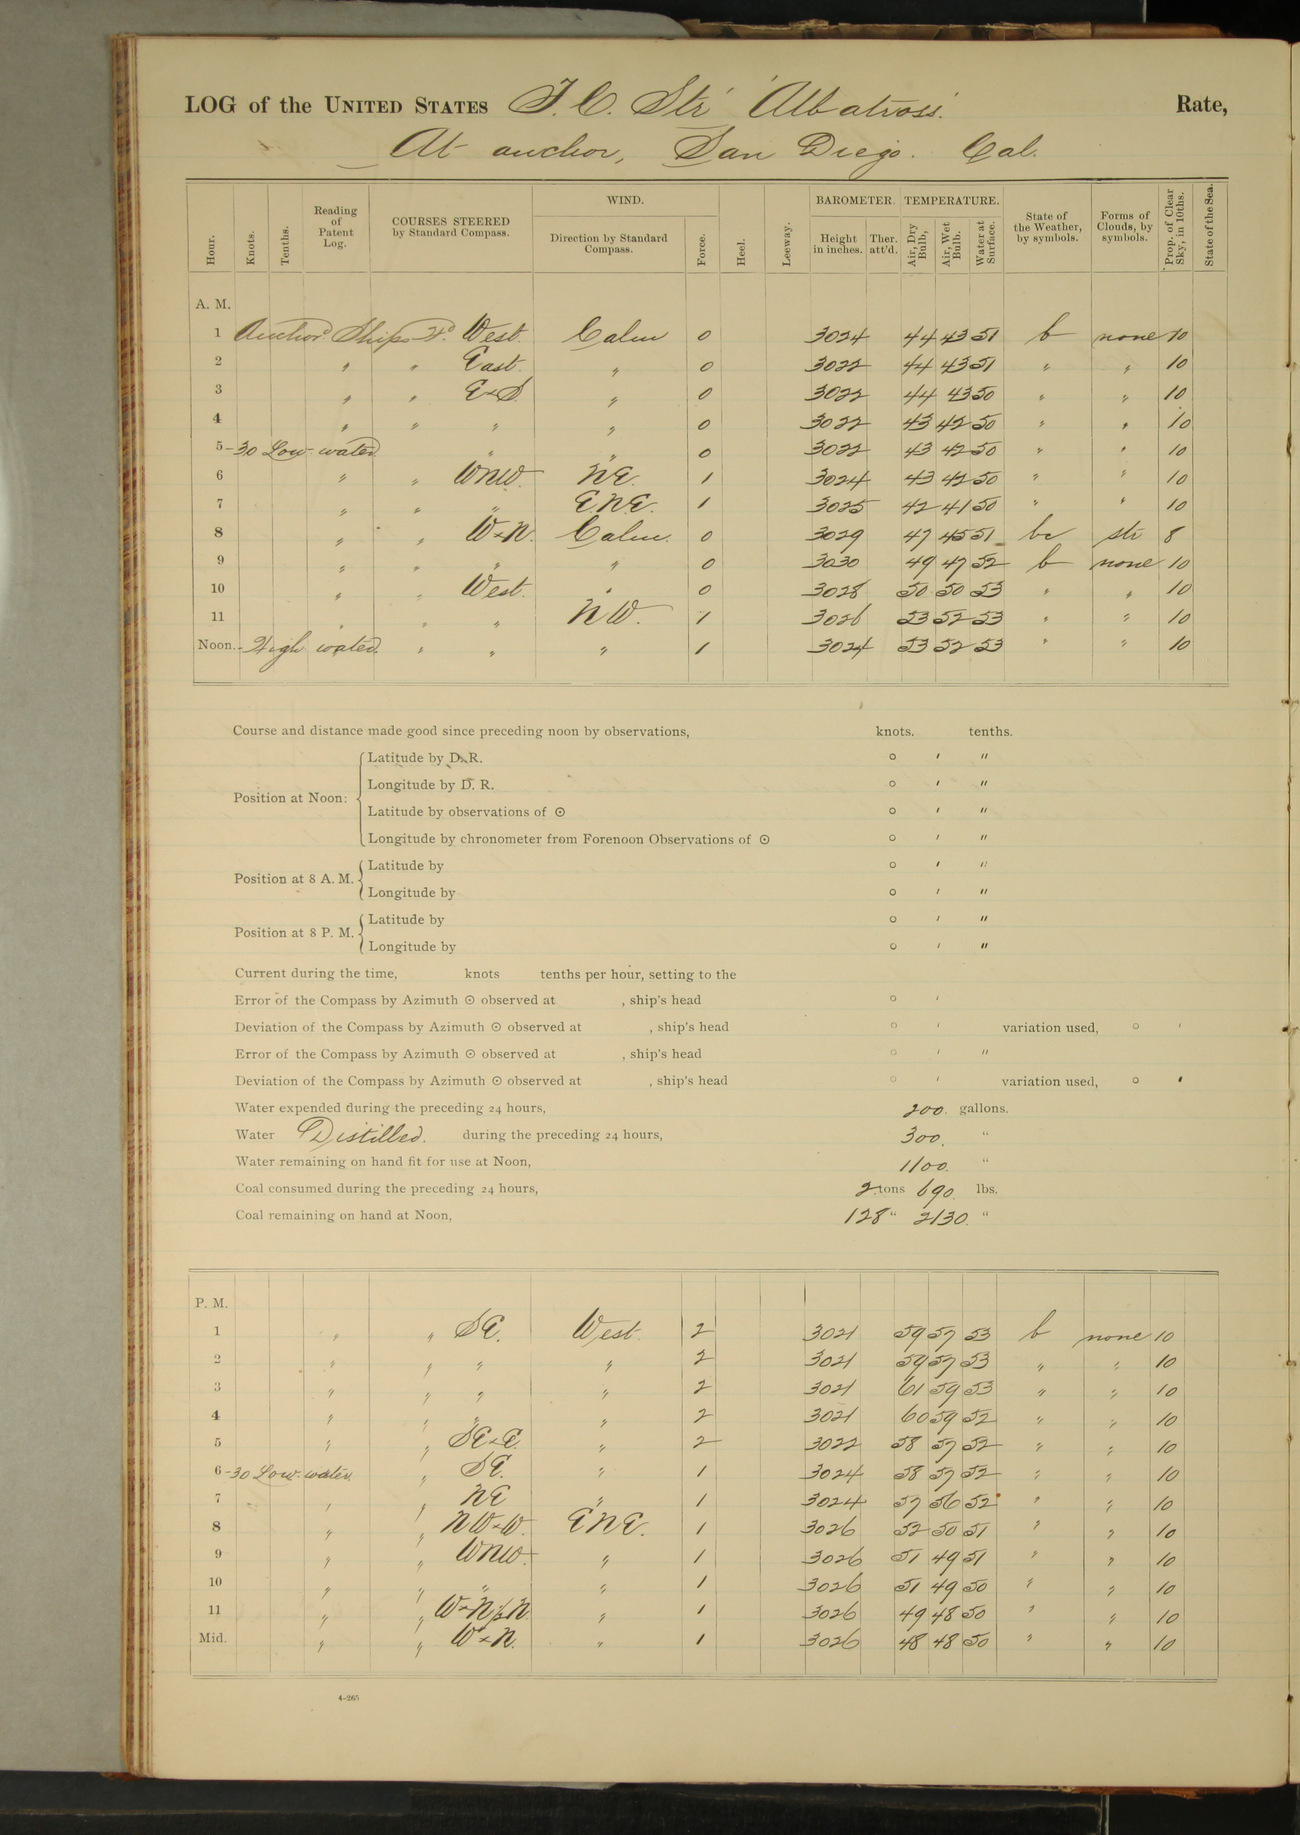 LOG of the UNITED STATES F. C. Str "Albatross". Rate,
At anchor, San Diego. Cal.
Hour. Knots. Tenths. Reading of Patent Log. COURSES STEERED by Standard Compass. WIND. Direction by Standard Compass. Force. Heel. Leeway. BAROMETER. Height in inches. Ther. att'd. TEMPERATURE. Air, Dry Bulb, Air, Wet Bulb. Water at Surface. State of the Weather, by symbols. Forms of Clouds, by symbols. Prop. of Clear Sky, in 10ths. State of the Sea.
A. M.
1 Anchor'd Ships H'd West. Calm 0 3024 44 43 51 b none 10
2 " " East. " 0 3022 44 43 51 " " 10
3 " " ExS. " 0 3022 44 43 50 " " 10
4 " " " " 0 3022 43 42 50 " " 10
5-30 Low water " " 0 3022 43 42 50 " " 10
6 " " WNW. NE. 1 3024 43 42 50 " " 10
7 " " " ENE. 1 3025 42 41 50 " " 10
8 " " WxN. Calm. 0 3029 47 45 51 bc str 8
9 " " " " 0 3030 49 47 52 b none 10
10 " " West. " 0 3028 50 50 53 " " 10
11 " " " NW. 1 3026 53 52 53 " " 10
Noon.- High water. " " " 1 3024 53 52 53 " " 10
Course and distance made good since preceding noon by observations, knots. tenths.
Position at Noon: Latitude by D. R. ° ' "
Longitude by D. R. ° ' "
Latitude by observations of ☉ ° ' "
Longitude by chronometer from Forenoon Observations of ☉ ° ' "
Position at 8 A. M. Latitude by ° ' "
Longitude by ° ' "
Position at 8 P. M. Latitude by ° ' "
Longitude by ° ' "
Current during the time, knots tenths per hour, setting to the
Error of the Compass by Azimuth ☉ observed at , ship's head ° '
Deviation of the Compass by Azimuth ☉ observed at , ship's head ° ' variation used, ° '
Error of the Compass by Azimuth ☉ observed at , ship's head ° ' "
Deviation of the Compass by Azimuth ☉ observed at , ship's head ° ' variation used, ° '
Water expended during the preceding 24 hours, 200. gallons.
Water Distilled. during the preceding 24 hours, 300. "
Water remaining on hand fit for use at Noon, 1100. "
Coal consumed during the preceding 24 hours, 2 tons 690. lbs.
Coal remaining on hand at Noon, 128 " 2130. "
P. M.
1 " " SE. West. 2 3021 59 57 53 b none 10
2 " " " " 2 3021 59 57 53 " " 10
3 " " " " 2 3021 61 59 53 " " 10
4 " " " " 2 3021 60 59 52 " " 10
5 " " SExE. " 2 3022 58 57 52 " " 10
6-30 Low water. " SE. " 1 3024 58 57 52 " " 10
7 " " NE " 1 3024 57 56 52 " " 10
8 " " NWxW. ENE. 1 3026 52 50 51 " " 10
9 " " WNW. " 1 3026 51 49 51 " " 10
10 " " " " 1 3026 51 49 50 " " 10
11 " " WxN½N " 1 3026 49 48 50 " " 10
Mid. " " WxN. " 1 3026 48 48 50 " " 10
4-265